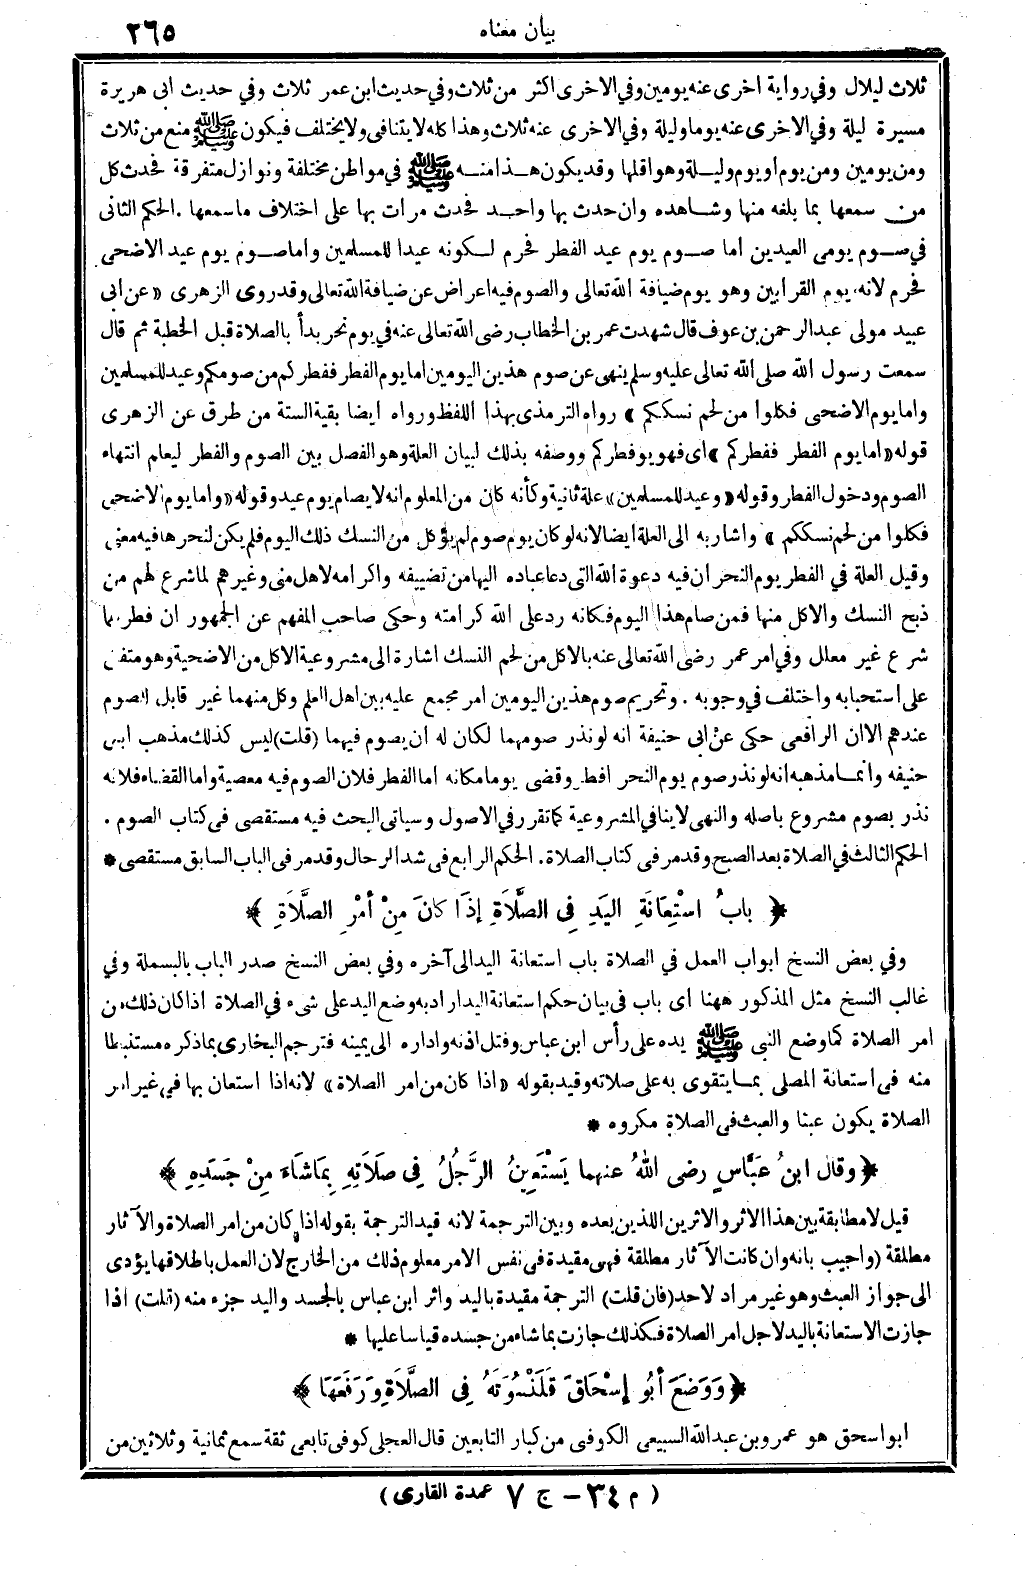 بيان معناه ٢٦٥
ثلاث ليلال وفي رواية اخرى عنه يومين وفي الاخرى اكثر من ثلاث وفي حديث ابن عمر ثلاث وفي حديث ابى هريرة
مسيرة ليلة وفي الاخرى عنه يوما وليلة وفي الاخرى عنه ثلاث وهذا كله لا يتنافى ولا يختلف فيكون ﷺ منع من ثلاث
ومن يومين ومن يوم أو يوم وليلة وهو اقلها وقد يكون هذا منه ﷺ في مواطن مختلفة ونوازل متفرقة فحدث كل
من سمعها بما بلغه منها وشاهده وان حدث بها واحد فحدث مرات بها على اختلاف ما سمعها . الحكم الثانى
في صوم يومى العيدين اما صوم يوم عيد الفطر فحرم لكونه عيدا للمسلمين واما صوم يوم عيد الاضحى
فحرم لانه يوم القرابين وهو يوم ضيافة الله تعالى والصوم فيه اعراض عن ضيافة الله تعالى وقد روى الزهرى «عن ابى
عبيد مولى عبد الرحمن بن عوف قال شهدت عمر بن الخطاب رضى الله تعالى عنه في يوم نحر بدأ بالصلاة قبل الخطبة ثم قال
سمعت رسول الله صلى الله تعالى عليه وسلم ينهى عن صوم هذين اليومين اما يوم الفطر ففطركم من صومكم وعيد للمسلمين
واما يوم الاضحى فكلوا من لحم نسككم» رواه الترمذى بهذا اللفظ ورواه ايضا بقية الستة من طرق عن الزهرى
قوله «اما يوم الفطر ففطركم» اى فهو يوم فطركم ووصفه بذلك لبيان العلة وهو الفصل بين الصوم والفطر ليعلم انتهاء
الصوم ودخول الفطر وقوله «وعيد للمسلمين» علة ثانية وكأنه كان من المعلوم انه لا يصام يوم عيد وقوله «واما يوم الاضحى
فكلوا من لحم نسككم» واشار به الى العلة ايضا لانه لو كان يوم صوم لم يؤكل من النسك ذلك اليوم فلم يكن لنحرها فيه معنى
وقيل العلة في الفطر يوم النحر ان فيه دعوة الله التى دعا عباده اليها من تضييفه واكرامه لاهل منى وغيرهم لما شرع لهم من
ذبح النسك والاكل منها فمن صام هذا اليوم فكانه رد على الله كرامته وحكى صاحب المفهم عن الجمهور ان فطرهما
شرع غير معلل وفي امر عمر رضى الله تعالى عنه بالاكل من لحم النسك اشارة الى مشروعية الاكل من الاضحية وهو متفق
على استحبابه واختلف في وجوبه . وتحريم صوم هذين اليومين امر مجمع عليه بين اهل العلم وكل منهما غير قابل الصوم
عندهم الا ان الرافعى حكى عن ابى حنيفة انه لو نذر صومهما لكان له ان يصوم فيهما (قلت) ليس كذلك مذهب ابى
حنيفه وانما مذهبه انه لو نذر صوم يوم النحر افطر وقضى يوما مكانه اما الفطر فلان الصوم فيه معصية واما القضاء فلانه
نذر بصوم مشروع باصله والنهى لا ينافي المشروعية كما تقرر في الاصول وسياتى البحث فيه مستقصى فى كتاب الصوم .
الحكم الثالث في الصلاة بعد الصبح وقد مر فى كتاب الصلاة . الحكم الرابع فى شد الرحال وقد مر فى الباب السابق مستقصى *
﴿ بابُ استِعانَةِ اليَدِ فِى الصَّلاَةِ إذَا كانَ مِنْ أمْرِ الصَّلاَةِ ﴾
وفي بعض النسخ ابواب العمل في الصلاة باب استعانة اليد الى آخره وفي بعض النسخ صدر الباب بالبسملة وفي
غالب النسخ مثل المذكور ههنا اى باب فى بيان حكم استعانة اليد اراد به وضع اليد على شىء في الصلاة اذا كان ذلك من
امر الصلاة كما وضع النبى ﷺ يده على رأس ابن عباس وفتل اذنه واداره الى يمينه فترجم البخارى بما ذكره مستنبطا
منه فى استعانة المصلى بما يتقوى به على صلاته وقيد بقوله «اذا كان من امر الصلاة» لانه اذا استعان بها في غير امر
الصلاة يكون عبثا والعبث فى الصلاة مكروه *
﴿ وقال ابنُ عَبَّاسٍ رضى اللهُ عنهما يَسْتَعِينُ الرَّجُلُ فِى صَلَاتِهِ بِمَا شَاءَ مِنْ جَسَدِهِ ﴾
قيل لا مطابقة بين هذا الاثر والاثرين اللذين بعده وبين الترجمة لانه قيد الترجمة بقوله اذا كان من امر الصلاة والآثار
مطلقة (واجيب) بانه وان كانت الآثار مطلقة فهى مقيدة فى نفس الامر معلوم ذلك من الخارج لان العمل باطلاقها يؤدى
الى جواز العبث وهو غير مراد لاحد (فان قلت) الترجمة مقيدة باليد واثر ابن عباس بالجسد واليد جزء منه (قلت) اذا
جازت الاستعانة باليد لاجل امر الصلاة فكذلك جازت بما شاء من جسده قياسا عليها *
﴿ وَوَضَعَ أبُو إسْحَاقَ قَلَنْسُوَتَهُ فِى الصَّلاَةِ وَرَفَعَهَا ﴾
ابو اسحق هو عمرو بن عبد الله السبيعى الكوفى من كبار التابعين قال العجلى كوفى تابعى ثقة سمع ثمانية وثلاثين من
( م ٣٤ – ج ٧ عمدة القارى )